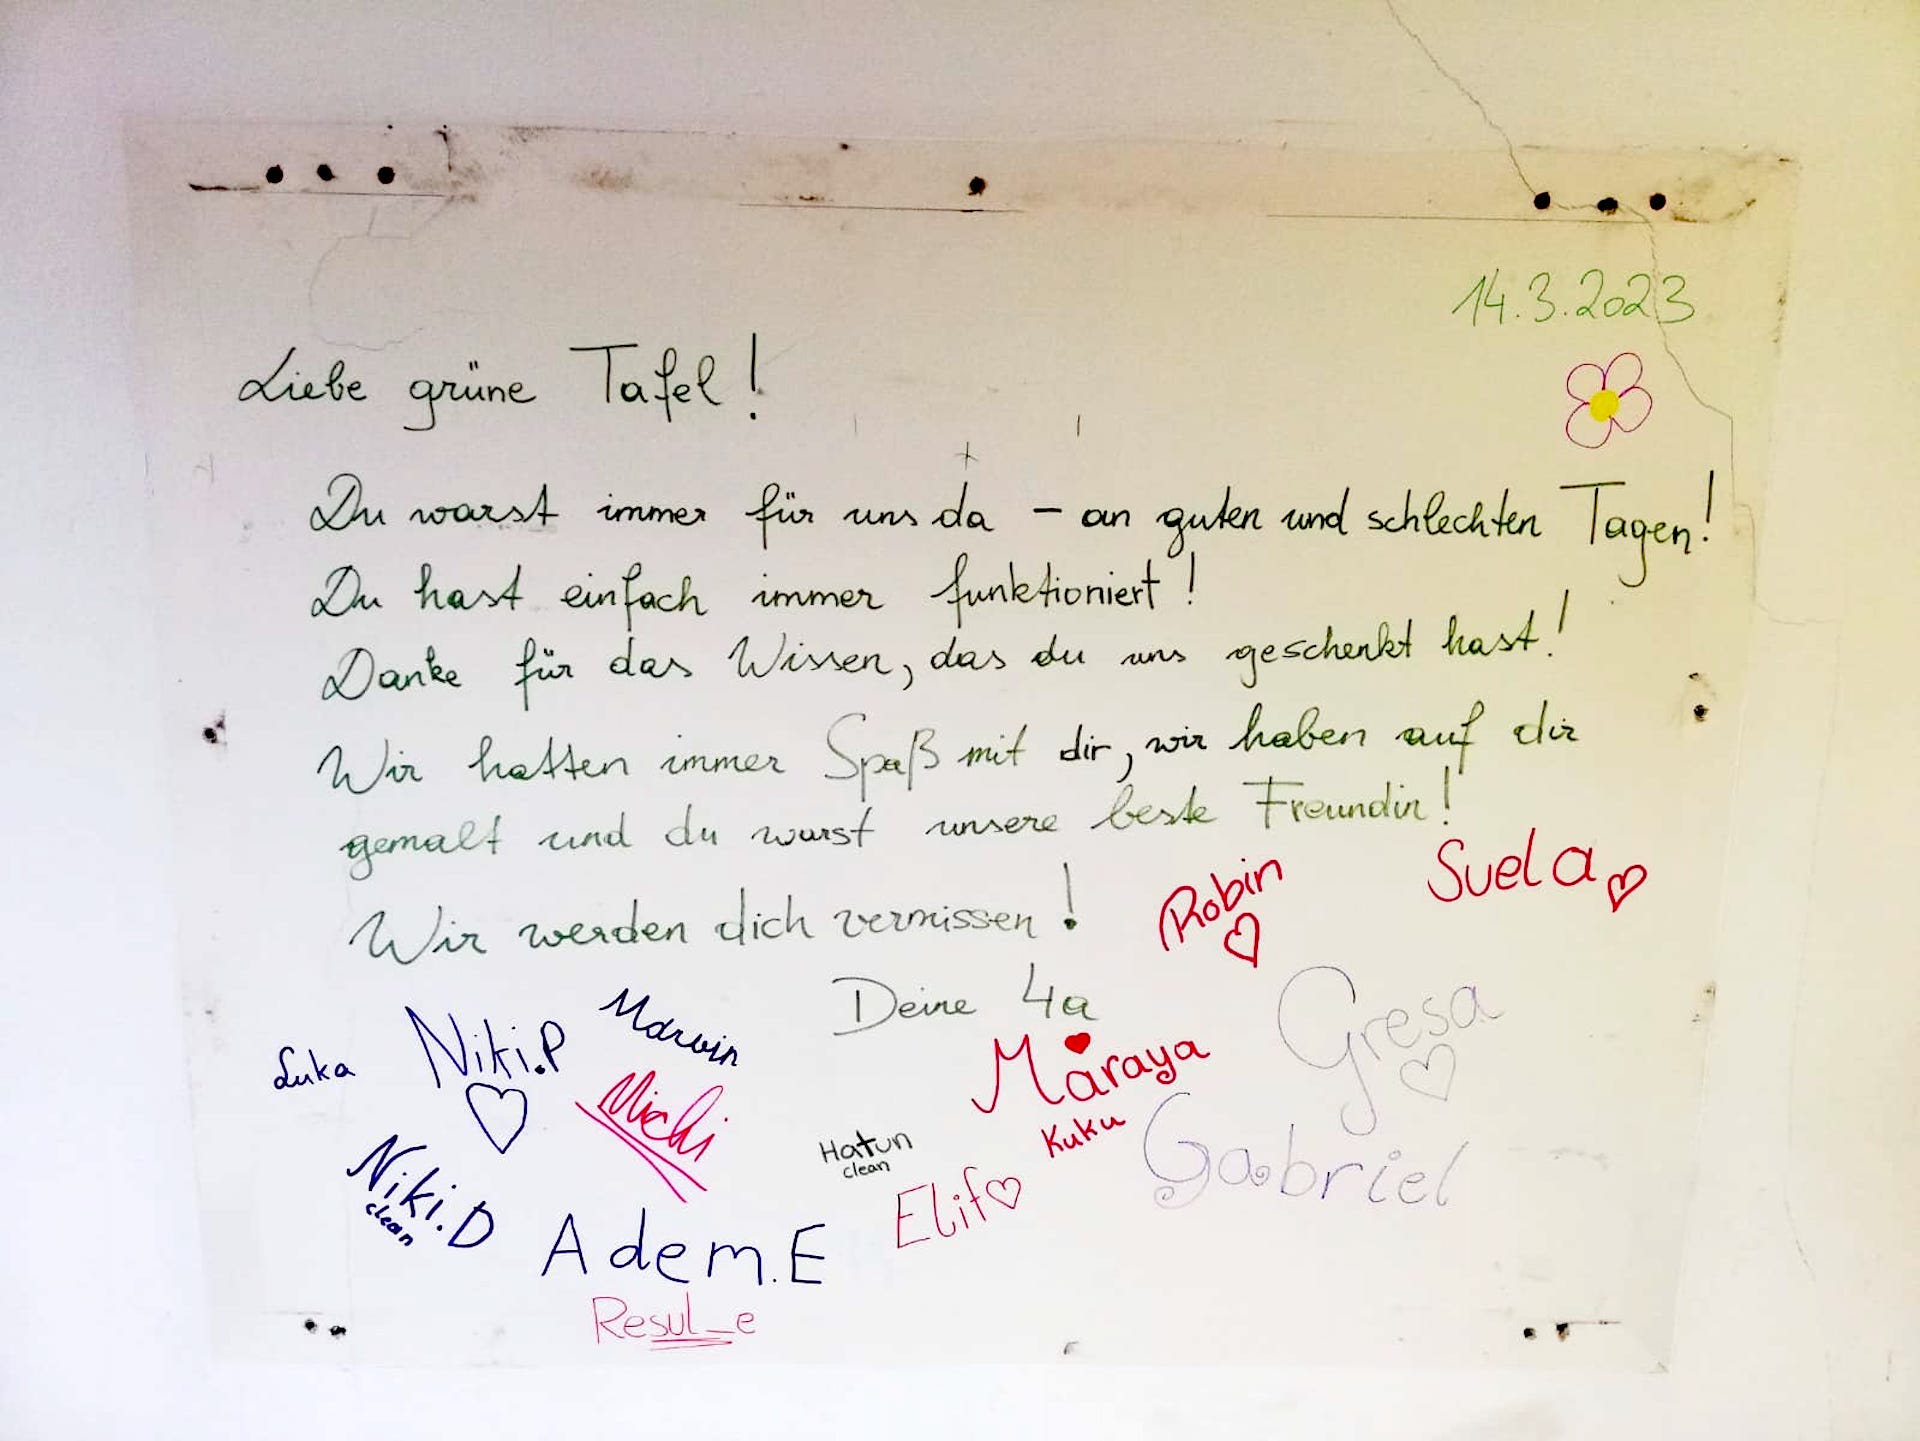 14.3.2023
Liebe grüne Tafel!
Du warst immer für uns da – an guten und schlechten Tagen!
Du hast einfach immer funktioniert!
Danke für das Wissen, das du uns geschenkt hast!
Wir hatten immer Spaß mit dir, wir haben auf dir
gemalt und du warst unsere beste Freundin!
Wir werden dich vermissen!
Deine 4a
Robin
Suela
Luka
Niki.P
Marvin
Michi
Maraya
Kuku
Gresa
Gabriel
Hatun
clean
Elif
Niki.D
clean
Adem.E
Resul_e